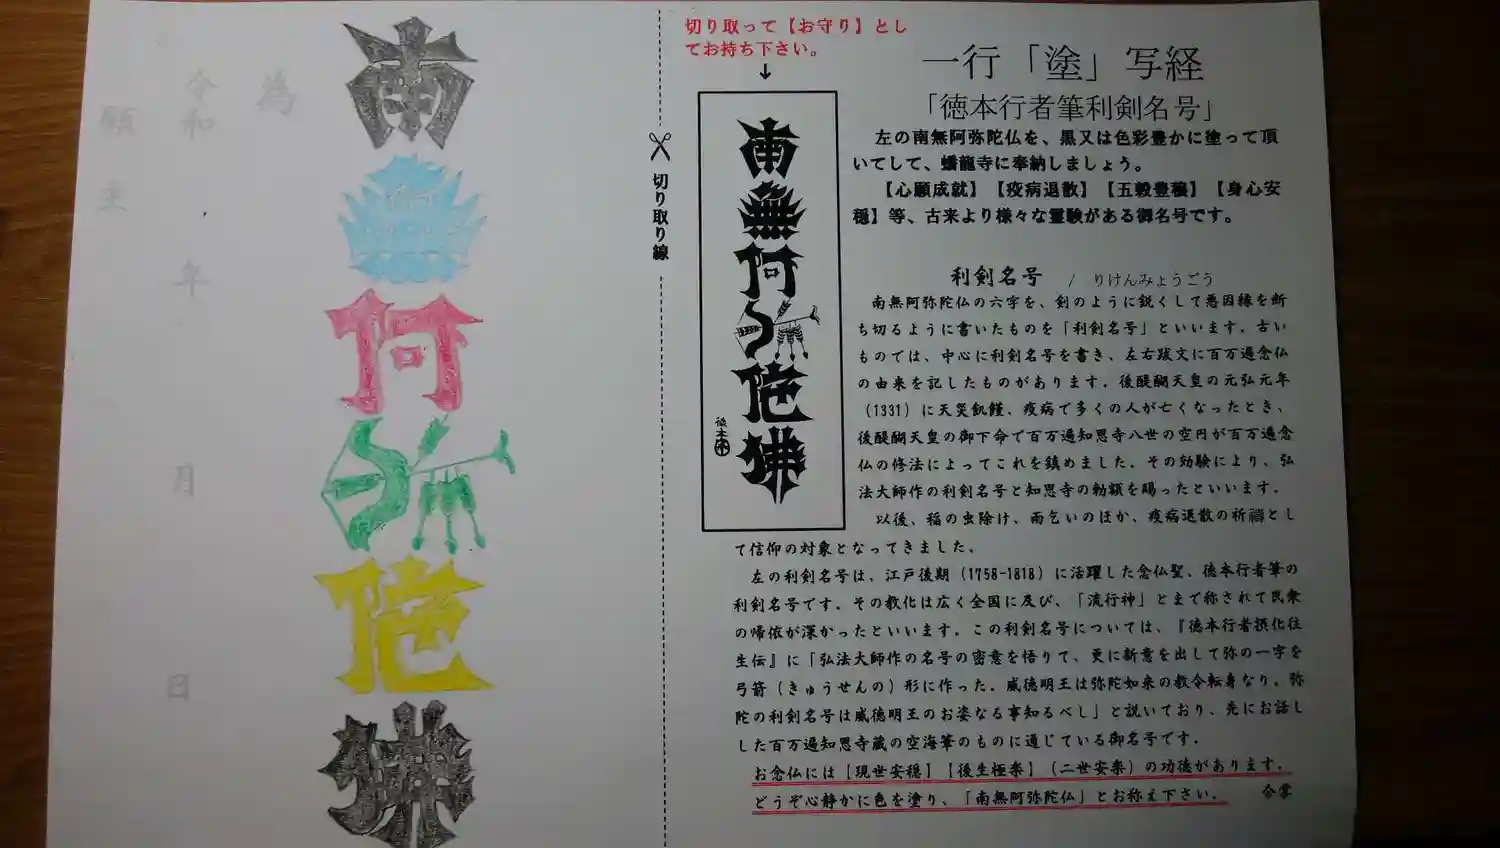 南
無
阿
弥
陀
佛
為
令和 年 月 日
願主
切り取り線
切り取って【お守り】とし
てお持ち下さい。
↓
南無阿弥陀佛
徳本
一行「塗」写経
「徳本行者筆利剣名号」
左の南無阿弥陀仏を、黒又は色彩豊かに塗って頂
いてして、蟠龍寺に奉納しましょう。
【心願成就】【疫病退散】【五穀豊穣】【身心安
穏】等、古来より様々な霊験がある御名号です。
利剣名号 / りけんみょうごう
南無阿弥陀仏の六字を、剣のように鋭くして悪因縁を断
ち切るように書いたものを「利剣名号」といいます。古い
ものでは、中心に利剣名号を書き、左右跋文に百万遍念仏
の由来を記したものがあります。後醍醐天皇の元弘元年
(1331)に天災飢饉、疫病で多くの人が亡くなったとき、
後醍醐天皇の御下命で百万遍知恩寺八世の空円が百万遍念
仏の修法によってこれを鎮めました。その効験により、弘
法大師作の利剣名号と知恩寺の勅額を賜ったといいます。
以後、稲の虫除け、雨乞いのほか、疫病退散の祈禱とし
て信仰の対象となってきました。
左の利剣名号は、江戸後期(1758-1818)に活躍した念仏聖、徳本行者筆の
利剣名号です。その教化は広く全国に及び、「流行神」とまで称されて民衆
の帰依が深かったといいます。この利剣名号については、『徳本行者摂化往
生伝』に「弘法大師作の名号の密意を悟りて、更に新意を出して弥の一字を
弓箭(きゅうせんの)形に作った。威徳明王は弥陀如来の教令転身なり。弥
陀の利剣名号は威徳明王のお姿なる事知るべし」と説いており、先にお話し
した百万遍知恩寺蔵の空海筆のものに通じている御名号です。
お念仏には【現世安穏】【後生極楽】(二世安楽)の功徳があります。
どうぞ心静かに色を塗り、「南無阿弥陀仏」とお称え下さい。 合掌